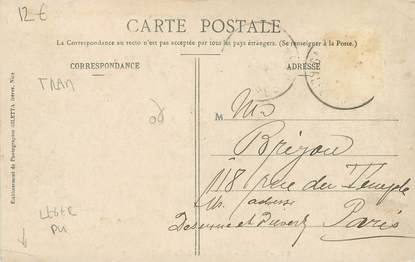 12 €
CARTE POSTALE
La Correspondance au recto n'est pas acceptée par tous les pays étrangers. (Se renseigner à la Poste.)
CORRESPONDANCE
ADRESSE
TRAM
M
Brizou
118 rue du Temple
Paris
LEGER
PLI
Etablissement de Photographie GILETTA frères, Nice